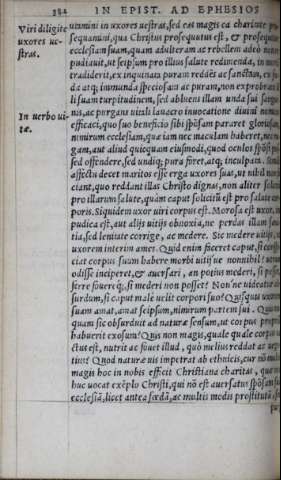 384 IN EPIST. AD EPHESIOS
Viri diligite
uxores ue-
stras.
In uerbo ui-
tæ.
in uxores uestras, sed eat magis ea charitate
sequamini, qua Christus prosequutus est, &
ecclesiam suam, quam adulteram ac rebellem adeò non
pudiauit, ut seipsum pro illius salute redimenda, in
tradiderit, ex inquinata puram reddēs ac sanctam, ex
da atq; immunda speciosam ac puram, non exprobrans
li suam turpitudinem, sed abluens illam unda sui sangui
nis, ac purgans uitali lauacro inuocatione diuini
efficaci, quo suo beneficio sibi spōsam pararet gloriosam,
nimirum ecclesiam, quæ iam nec maculam haberet, nec
gam, aut aliud quicquam eiusmodi, quod oculos spōsi
sed offendere, sed undiq; pura foret, atq; inculpata.
affectu decet maritos esse erga uxores suas, ut
ciant, quo reddant illas Christo dignas, non aliter
pro illarum salute, quàm caput solicitū est pro salute cor
poris. Siquidem uxor uiri corpus est. Morosa est uxor,
pudica est, aut alijs uitijs obnoxia, ne perdas illam
tia, sed lenitate corrige, ac medere. Sic medere uitijs,
uxorem interim ames. Quid enim faceret caput, si
ciat corpus suum habere morbi uitijue nonnihil?
odisse inciperet, & auersari, an potius mederi, si
ferre souerē, si mederi non posset? Non'ne uideatur ab
surdum, si caput malè uelit corpori suo? Quisquis uxorem
suam amat, amat seipsum, nimirum partem sui.
quàm sic obsurduit ad naturæ sensum, ut corpus proprium
habuerit exosum? Quin non magis, quale quale corpus
ctus est, nutrit ac fouet illud, quò melius reddat ac
tius? Quod naturæ uis impetrat ab ethnicis, cur nō
magis hoc in nobis effecit Christiana charitas, quæ
huc uocat exēplo Christi, qui nō est auersatus spōsam
ecclesiā, licet antea fœdā, ac multis modis prostitutā